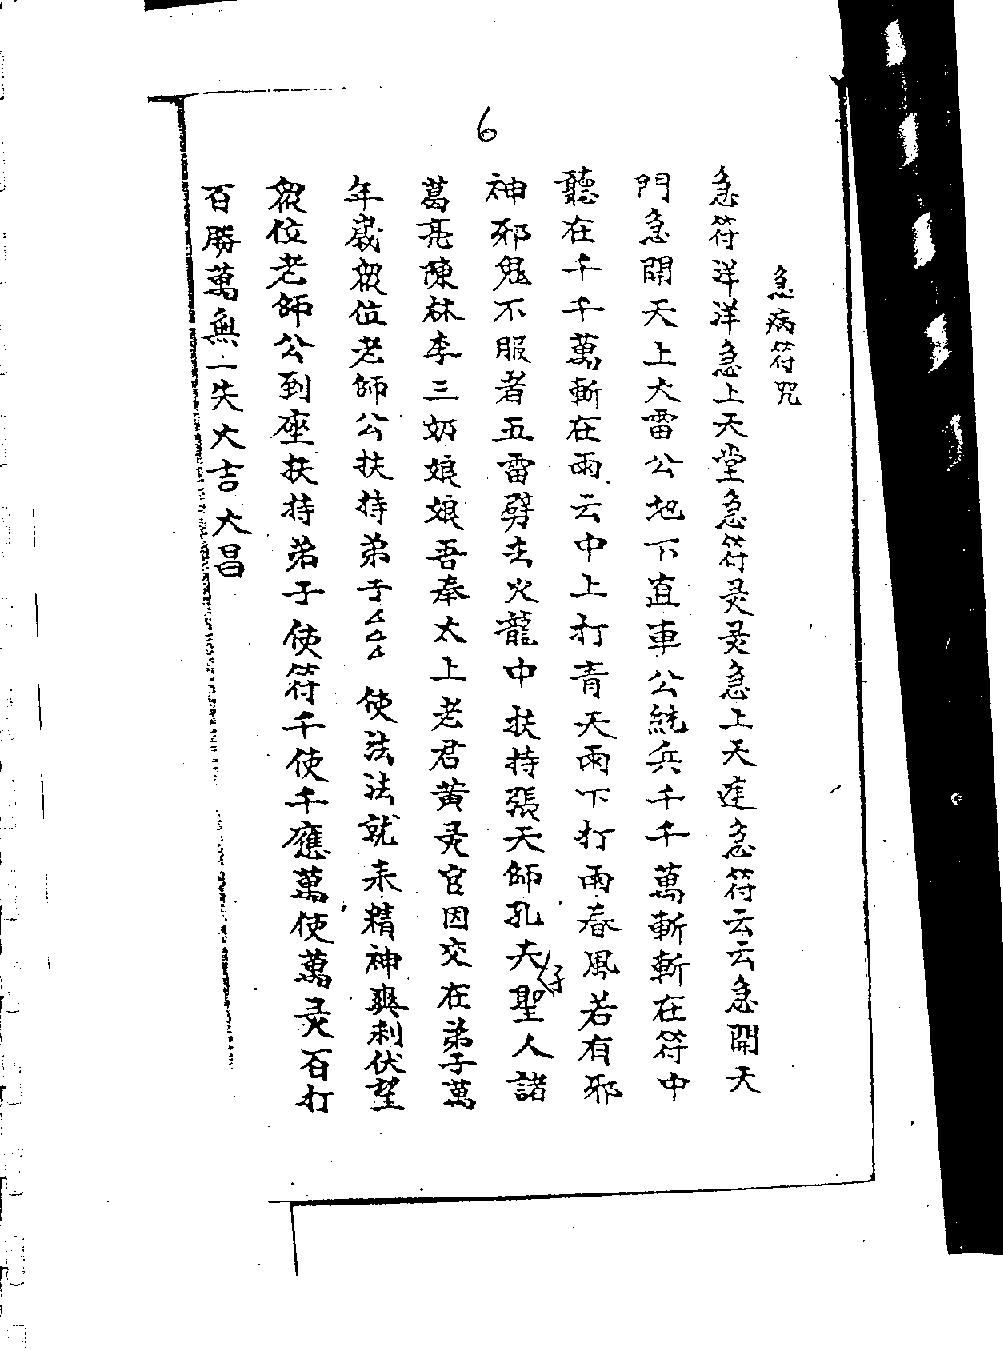 6
急病符咒
急符洋洋急上天堂急符灵灵急上天達急符云云急開天
門急開天上大雷公地下直車公統兵千千萬斬斬在符中
聽在千千萬斬在雨云中上打青天雨下打雨春風若有邪
神邪鬼不服者五雷劈去火龍中扶持張天師孔夫仔聖人諸
葛亮陳林李三奶娘娘吾奉太上老君黄灵官因交在弟子萬
年歲眾位老師公扶持弟子厶厶厶使法法就来精神爽利伏望
眾位老師公到座扶持弟子使符千使千應萬使萬灵百打
百勝萬無一失大吉大昌